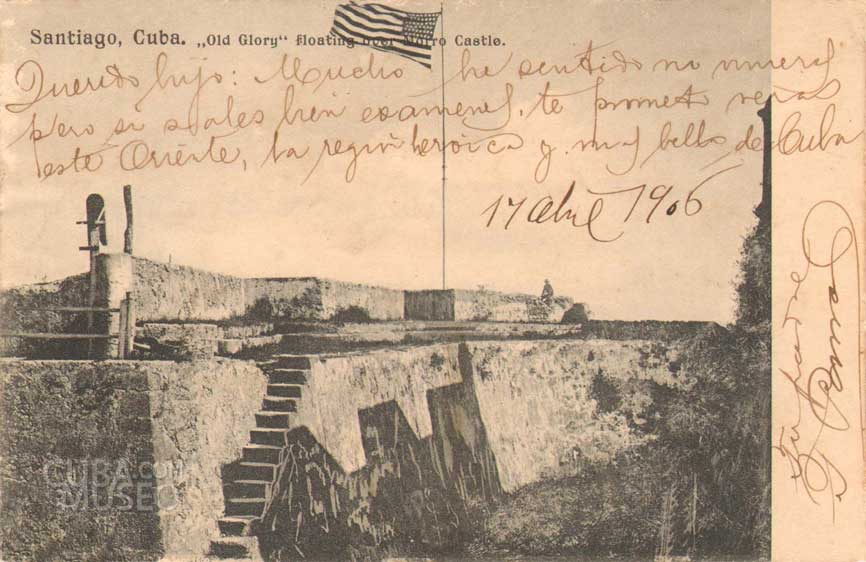 Santiago, Cuba. „Old Glory“ floating over Morro Castle.
Querido hijo: Mucho he sentido no vinieras
pero si sales bien examenes, te prometo veras
este Oriente, la región heroica y mas bella de Cuba
17 abril 1906
Tu padre
CUBA
MUSEO